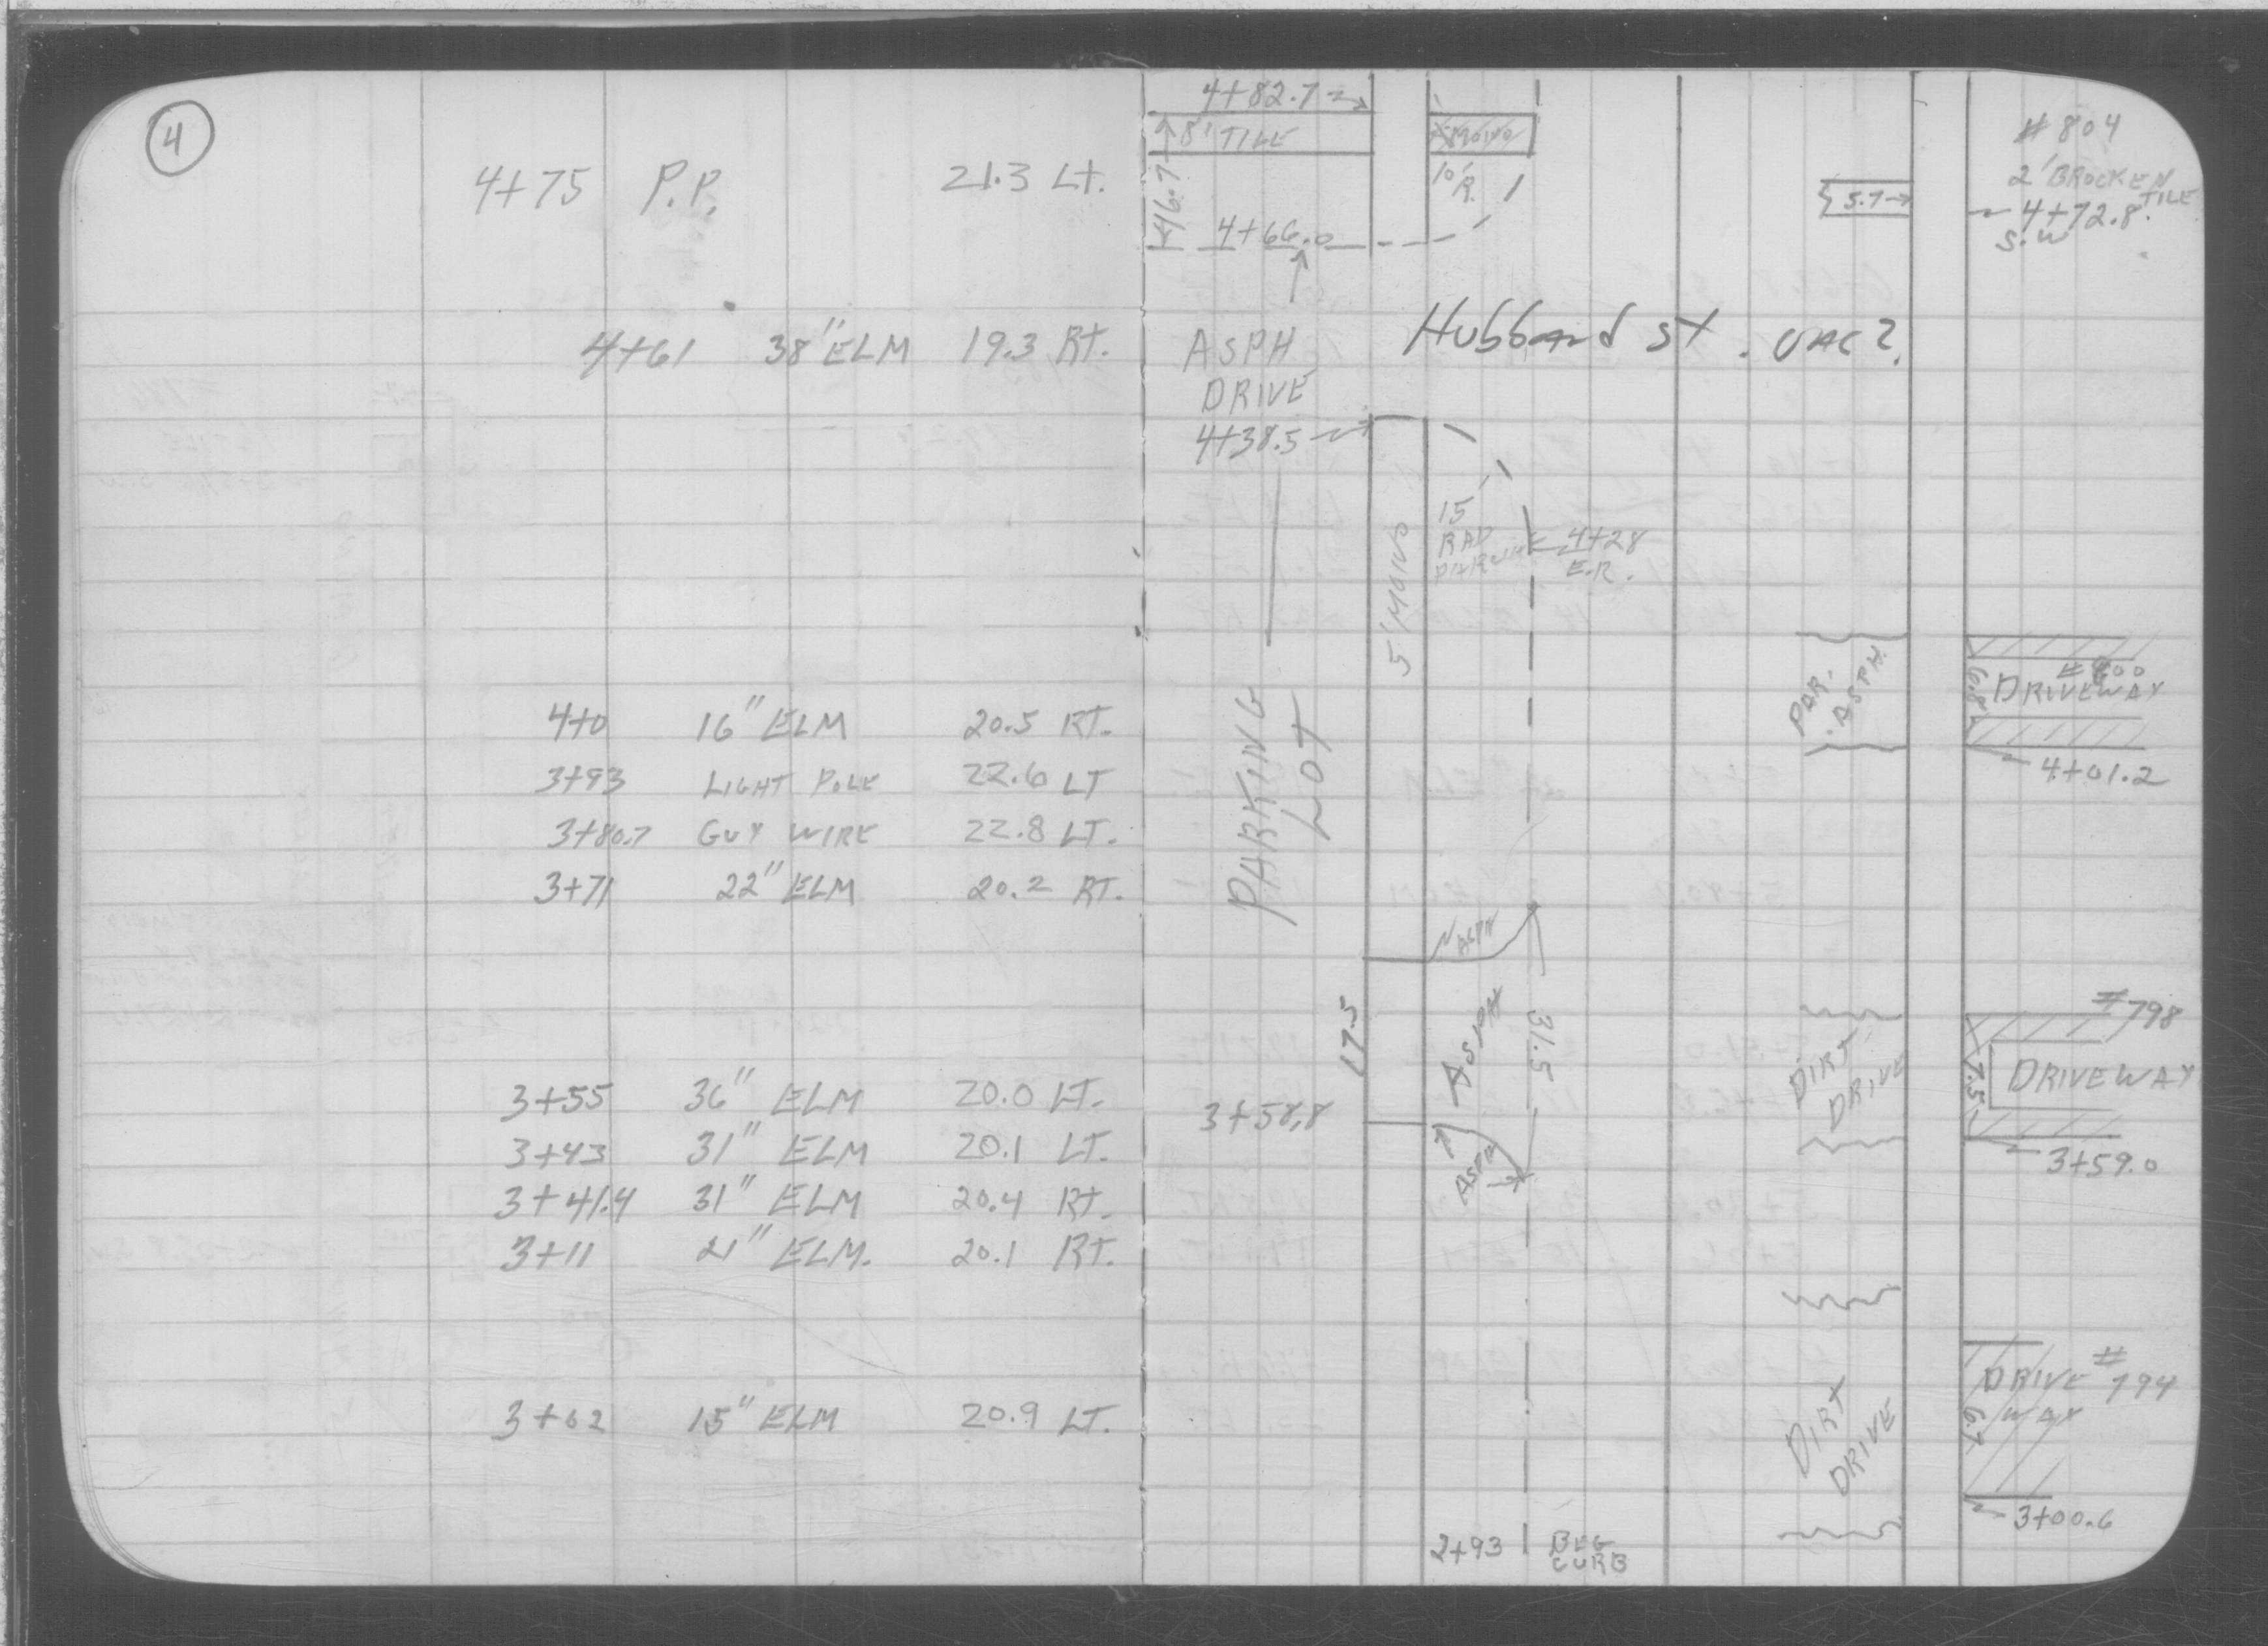 4
4+75 P.P. 21.3 LT.
4+61 38" ELM 19.3 RT.
4+0 16" ELM 20.5 RT.
3+93 LIGHT POLE 22.6 LT
3+80.7 GUY WIRE 22.8 LT.
3+71 22" ELM 20.2 RT.
3+55 36" ELM 20.0 LT.
3+43 31" ELM 20.1 LT.
3+41.4 31" ELM 20.4 RT.
3+11 21" ELM. 20.1 RT.
3+02 15" ELM 20.9 LT.
4+82.7
8' TILE
16.7
4+66.0
10'
R.
5.7
# 804
2' BROCKEN
TILE
4+72.8
S.W.
Hubbard St. VAC?
ASPH
DRIVE
4+38.5
5' MONO
15
RAD
4+28
E.R.
PARKING
LOT
PAR.
ASPH.
6.8
# 800
DRIVEWAY
4+01.2
ASPH
17.5
ASPH
31.5
3+58.8
ASPH
DIRT
DRIVE
7.5
# 798
DRIVEWAY
3+59.0
DIRT
DRIVE
6.7
DRIVE # 794
WAY
3+00.6
2+93 BEG
CURB